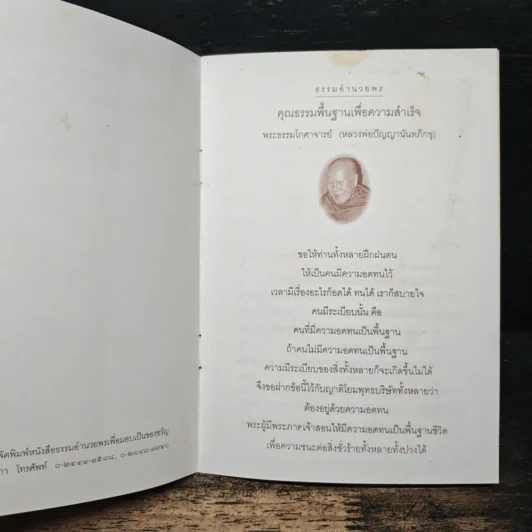 จัดพิมพ์หนังสือธรรมอำนวยพรเพื่อมอบเป็นของขวัญ
โทรศัพท์ ๐-๒๔๔๑-๑๕๘๘,
ธรรมอำนวยพร
คุณธรรมพื้นฐานเพื่อความสำเร็จ
พระธรรมโกศาจารย์ (หลวงพ่อปัญญานันทภิกขุ)
ขอให้ท่านทั้งหลายฝึกฝนตน
ให้เป็นคนมีความอดทนไว้
เวลามีเรื่องอะไรก็อดได้ ทนได้ เราก็สบายใจ
คนมีระเบียบนั้น คือ
คนที่มีความอดทนเป็นพื้นฐาน
ถ้าคนไม่มีความอดทนเป็นพื้นฐาน
ความมีระเบียบของสิ่งทั้งหลายก็จะเกิดขึ้นไม่ได้
จึงขอฝากข้อนี้ไว้กับญาติโยมพุทธบริษัททั้งหลายว่า
ต้องอยู่ด้วยความอดทน
พระผู้มีพระภาคเจ้าสอนให้มีความอดทนเป็นพื้นฐานชีวิต
เพื่อความชนะต่อสิ่งชั่วร้ายทั้งหลายทั้งปวงได้